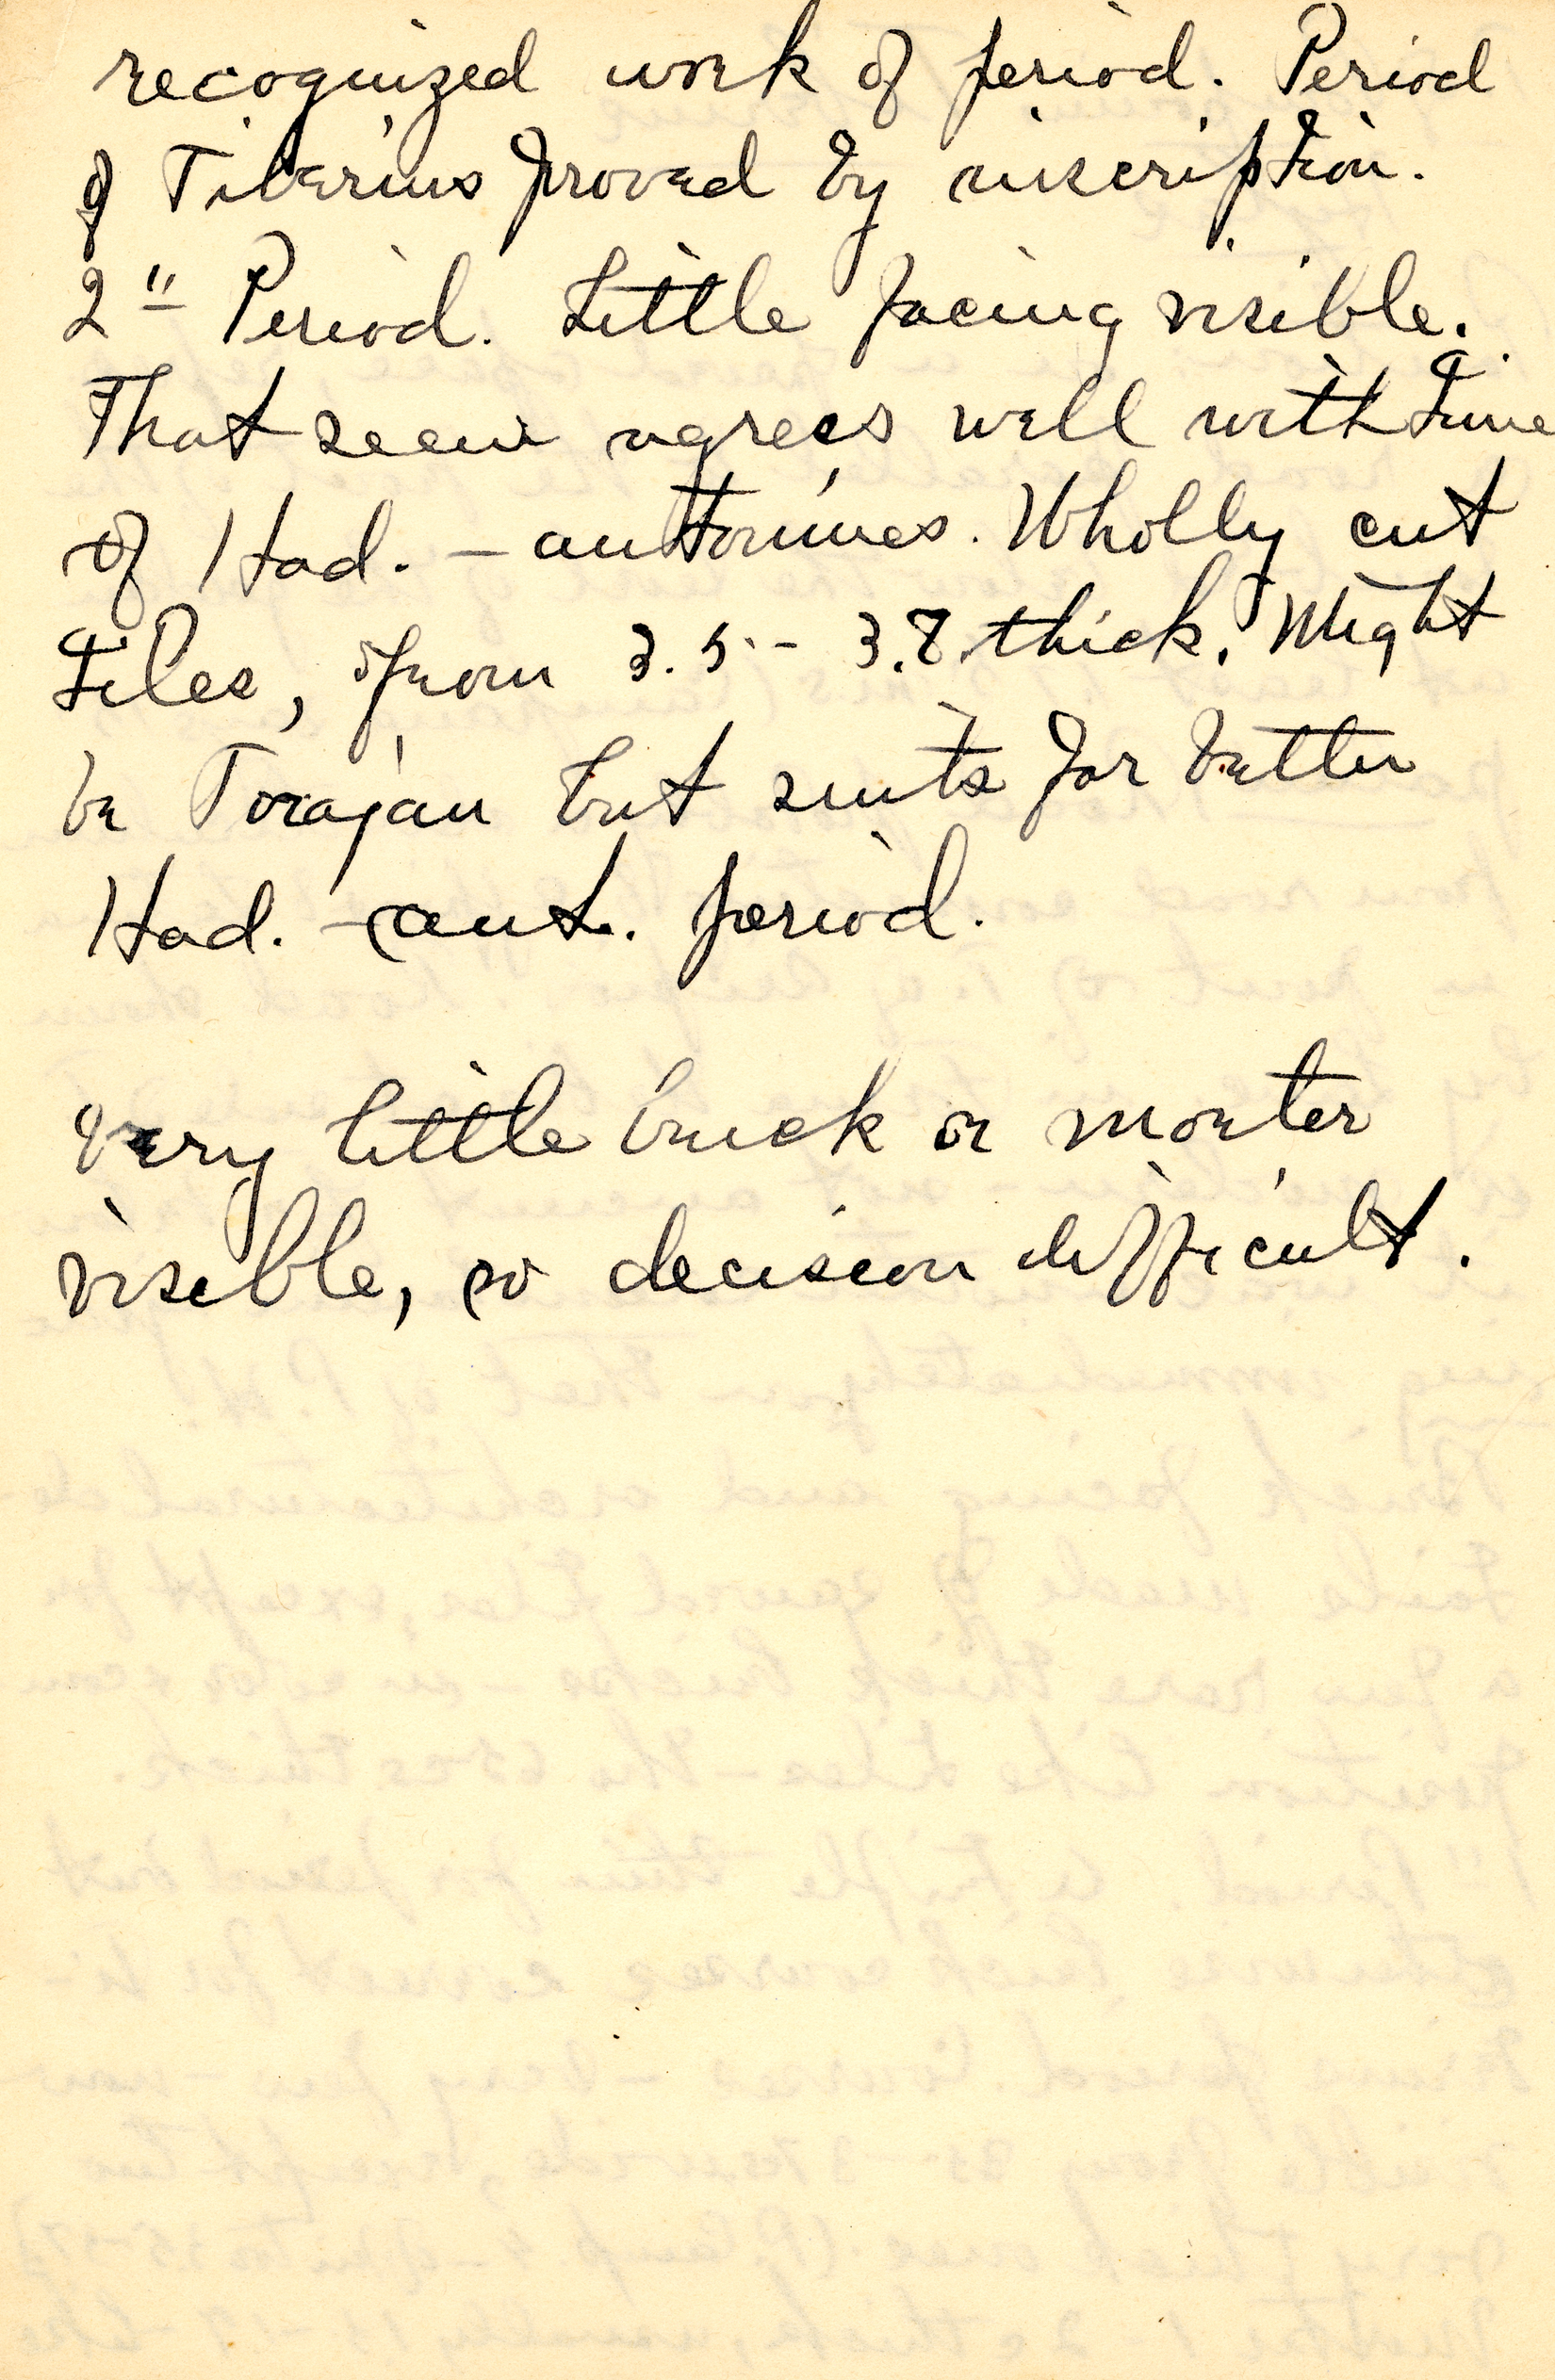 recognized work of period. Period
of Tiberius proved by inscription.
2" Period. Little facing visible.
That seen agrees well with time
of Had. - antonines. Wholly cut
tiles, from 3.5 - 3.8 thick. Might
be Trajan but suits far better
Had. - ant. period.
Very little brick or morter
visible, so decision difficult.